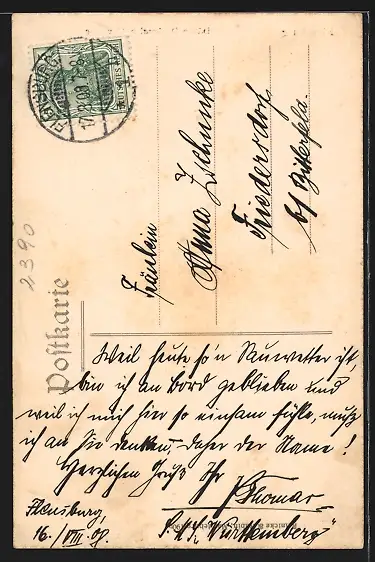 FLENSBURG
DEUTSCHES REICH
Postkarte
2390
Fräulein
Anna Zschunke
Friedersdorf
b/ Bitterfeld.
Weil heute so'n Sauwetter ist,
bin ich an Bord geblieben und
weil ich mich hier so einsam fühle, muß
ich an Sie denken, daher der Name!
Herzlichen Gruß Ihr
Thomas
Flensburg,
16./VIII. 09.
S.M.S. "Württemberg"